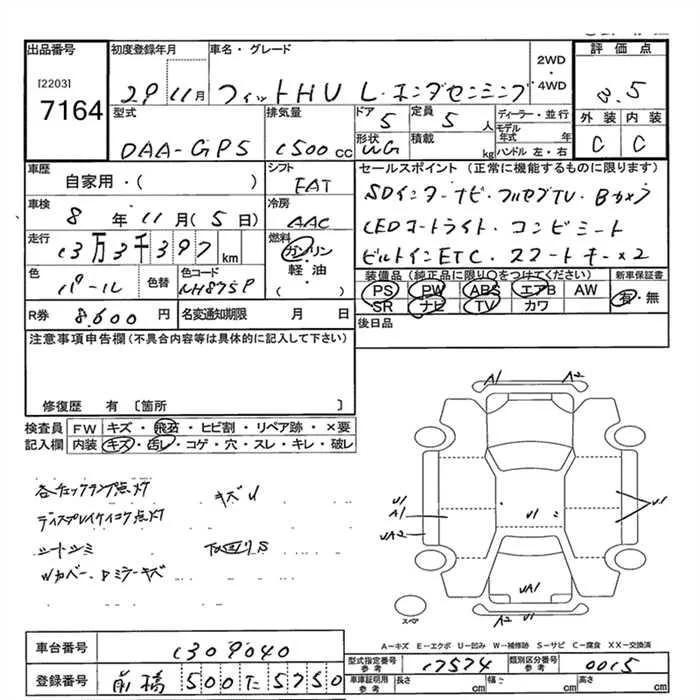 出品番号
[2203]
7164
初度登録年月
29 11月
車名・グレード
フィットHV L・ホンダセンシング
2WD
・
4WD
評価点
3.5
外装 内装
C C
型式
DAA-GP5
排気量
1500 cc
ドア
5
定員
5 人
形状
WG
積載
kg
ディーラー・並行
モデル
年式 年
ハンドル 左・右
車歴
自家用・( )
シフト
FAT
車検
8 年 11 月 (5 日)
冷房
AAC
走行
13万3千397 km
燃料
ガソリン
・
軽油
( )
色
パール
色替
色コード
NH875P
R券
8,600 円
名変通知期限 月 日
セールスポイント (正常に機能するものに限ります)
SDインターナビ・フルセグTV・Bカメラ
LEDオートライト・コンビシート
ビルトインETC・スマートキー×2
装備品(純正品に限り○をつけてください)
PS PW ABS エアB AW
SR ナビ TV カワ
新車保証書
有・無
後日品
注意事項申告欄(不具合内容等は具体的に記入して下さい)
修復歴 有 〔箇所 〕
検査員
記入欄
FW キズ・飛石・ヒビ割・リペア跡・×要
内装 キズ・汚レ・コゲ・穴・スレ・キレ・破レ
各チェックランプ点灯 キズU
ディスプレイケイコク点灯
シートシミ 下回りS
A1 A2
U1
A1
UA2
U1
U1
UA1
A2 U1
スペア
A-キズ E-エクボ U-凹み W-補修跡 S-サビ C-腐食 XX-交換済
車台番号
1309040
登録番号
前橋 500 た 5750
型式指定番号
参考
17574
類別区分番号
参考
0015
車庫証明用
参考
長さ cm
幅 cm
高さ cm